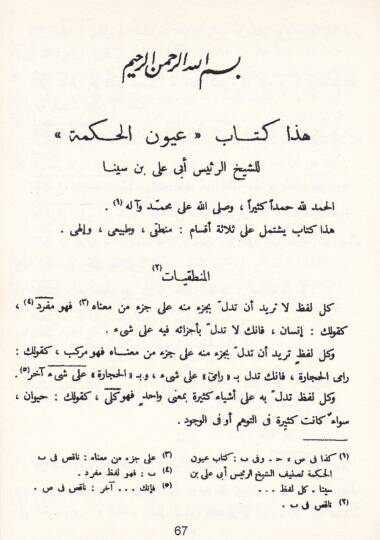 بسم الله الرحمن الرحيم
هذا كتاب « عيون الحكمة »
للشيخ الرئيس أبى على بن سينا
الحمد لله حمداً كثيراً ، وصلى الله على محمّد وآله (١) .
هذا كتاب يشتمل على ثلاثة أقسام : منطقى ، وطبيعى ، وإلهى .
المنطقيات (٢)
كل لفظ لا تريد أن تدلّ بجزء منه على جزء من معناه (٣) فهو مفرد (٤) ،
كقولك : إنسان ، فانك لا تدلّ بأجزائه فيه على شىء .
وكل لفظٍ تريد أن تدلّ بجزء منه على جزء من معناه فهو مركب ، كقولك :
رامى الحجارة ، فانك تدل بـ « رامى » على شىء ، وبـ « الحجارة » على شىء آخر (٥) .
وكل لفظ تدلّ به على أشياء كثيرة بمعنى واحدٍ فهو كلى ، كقولك : حيوان ،
سواء كانت كثيرة فى التوهم أو فى الوجود .
(١) كذا فى ص ، ح . وفى ب : كتاب عيون
الحكمة تصنيف الشيخ الرئيس أبى على بن
سينا . كل لفظ ...
(٢) ناقص فى ب .
(٣) على جزء من معناه : ناقص فى ب
(٤) ب : فهو لفظ مفرد .
(٥) فإنك ... آخر : ناقص فى ص .
67